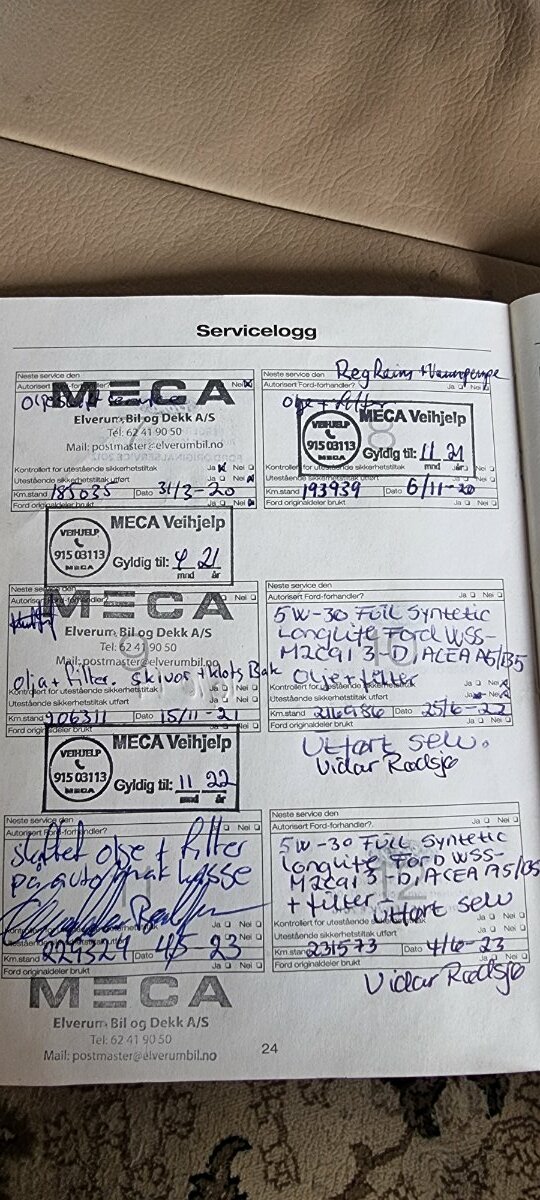 Servicelogg
Neste service den
Autorisert Ford-forhandler? Nei
MECA
Elverum Bil og Dekk A/S
Tel: 62 41 90 50
Mail: postmaster@elverumbil.no
Kontrollert for utestående sikkerhetstiltak Ja Nei
Utestående sikkerhetstiltak utført Ja Nei
Km.stand 185035 Dato 31/3-20
Ford originaldeler brukt Ja Nei
VEIHJELP
915 03113
MECA
MECA Veihjelp
Gyldig til: 4 21
mnd år
Neste service den Reg Reim + Vannpumpe
Autorisert Ford-forhandler? Ja Nei
Olje + filter
VEIHJELP
915 03113
MECA
MECA Veihjelp
Gyldig til: 11 21
mnd år
Kontrollert for utestående sikkerhetstiltak Ja Nei
Utestående sikkerhetstiltak utført Ja Nei
Km.stand 193939 Dato 6/11-20
Ford originaldeler brukt Ja Nei
Neste service den
Autorisert Ford-forhandler? Ja Nei
MECA
Elverum Bil og Dekk A/S
Tel: 62 41 90 50
Mail: postmaster@elverumbil.no
Olja + filter. Skivor + klots Bak
Kontrollert for utestående sikkerhetstiltak Ja Nei
Utestående sikkerhetstiltak utført Ja Nei
Km.stand 206311 Dato 15/11-21
Ford originaldeler brukt Ja Nei
VEIHJELP
915 03113
MECA
MECA Veihjelp
Gyldig til: 11 22
mnd år
Neste service den
Autorisert Ford-forhandler? Ja Nei
5W-30 Full Syntetic
Longlife Ford WSS-
M2C913-D, ACEA A5/B5
Olje + filter
Kontrollert for utestående sikkerhetstiltak Ja Nei
Utestående sikkerhetstiltak utført Ja Nei
Km.stand Dato 25/6-22
Ford originaldeler brukt Ja Nei
Utført selv.
Vidar Rødsjø
Neste service den
Autorisert Ford-forhandler? Ja Nei
Skiftet olje + filter
på
Km.stand 229529 Dato 4/5-23
Ford originaldeler brukt Ja Nei
MECA
Elverum Bil og Dekk A/S
Tel: 62 41 90 50
Mail: postmaster@elverumbil.no
Neste service den
Autorisert Ford-forhandler? Ja Nei
5W-30 Full Syntetic
Longlife Ford WSS-
M2C913-D, ACEA A5/B5
+ filter Utført selv
Kontrollert for utestående sikkerhetstiltak Ja Nei
Utestående sikkerhetstiltak utført Ja Nei
Km.stand 231573 Dato 4/6-23
Ford originaldeler brukt Ja Nei
Vidar Rødsjø
24